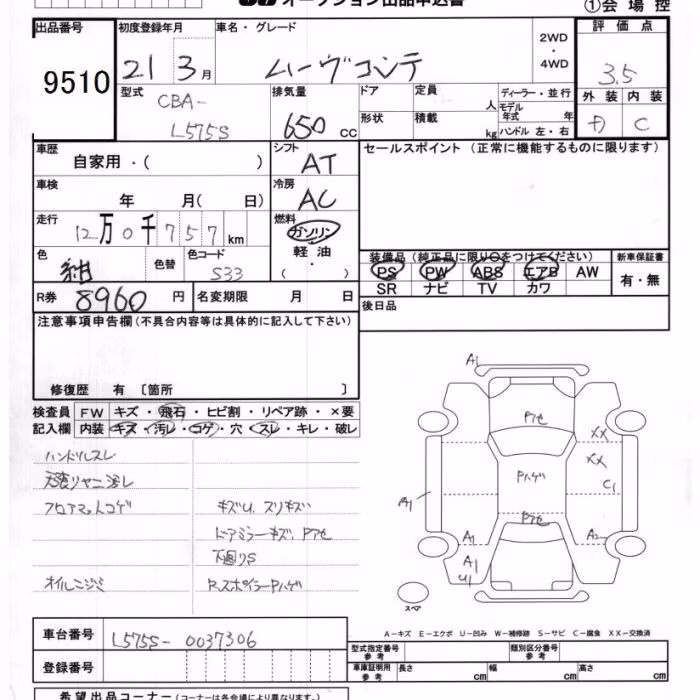 オークション出品申込書
①会場控
出品番号
9510
初度登録年月
21 3月
車名・グレード
ムーヴコンテ
2WD
・
4WD
評価点
3.5
外装 内装
C
型式
CBA-
L575S
排気量
650 cc
ドア
形状
定員
人
積載
kg
ディーラー・並行
モデル年式 年
ハンドル 左・右
車歴
自家用・( )
シフト
AT
セールスポイント (正常に機能するものに限ります)
車検
年 月( 日)
冷房
AC
走行
12万0千757km
燃料
ガソリン
軽油
・
( )
色
紺
色替
色コード
S33
装備品 (純正品に限り○をつけてください)
PS PW ABS エアB AW
SR ナビ TV カワ
新車保証書
有・無
R券
8960円
名変期限 月 日
後日品
注意事項申告欄(不具合内容等は具体的に記入して下さい)
修復歴 有 〔箇所 〕
検査員
記入欄
FW キズ・飛石・ヒビ割・リペア跡・×要
内装 キズ・汚レ・コゲ・穴・スレ・キレ・破レ
ハンドルスレ
天張リヤニ汚レ
フロアマットコゲ
キズU、スリキズ
ドアミラーキズ、Pアセ
下廻りS
オイルニジミ
R.スポイラーPハゲ
A1
Pアセ
XX
XX
Pハゲ
C1
A1
Pアセ
A1
A2
A1
U1
スペア
A-キズ E-エクボ U-凹み W-補修跡 S-サビ C-腐食 XX-交換済
車台番号
L575S-0037306
登録番号
型式指定番号
参考
類別区分番号
参考
車庫証明用
参考
長さ cm
幅 cm
高さ cm
希望出品コーナー(コーナーは各会場により異なります。)